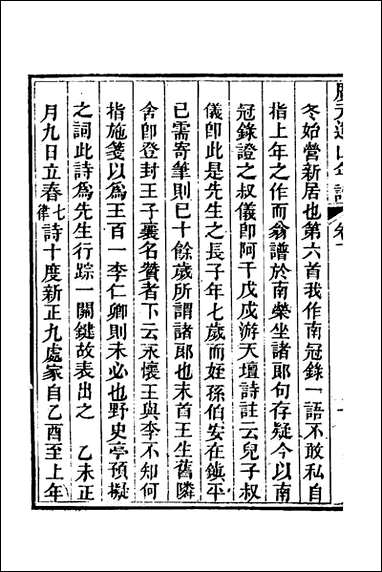 廣元遺山年譜 卷下
冬始營新居也第六首我作南冠錄一語不敢私自
指上年之作而翁譜於南榮坐諸郎句存疑今以南
冠錄證之叔儀卽阿千戊戌游天壇詩註云兒子叔
儀卽此是先生之長子年七歲而姪孫伯安在鎭平
已需寄筆則已十餘歲所謂諸郎也末首王生舊隣
舍卽登封王子襄名贊者下云永懷王與李不知何
指施箋以爲王百一李仁卿則未必也野史亭預擬
之詞此詩爲先生行踪一關鍵故表出之　乙未正
月九日立春七律詩十度新正九處家自乙酉至上年